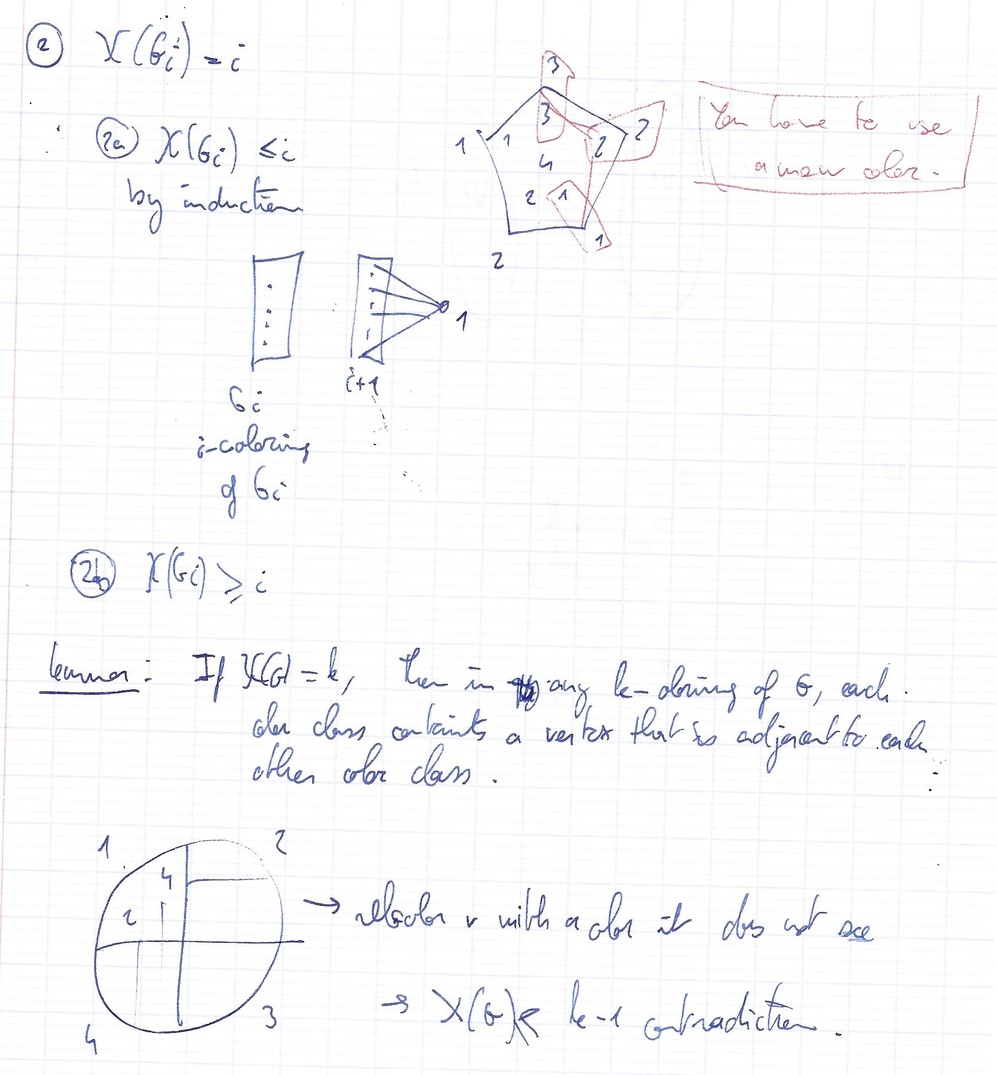 ② χ(Gi) = i
3
3
1 1
2 2
4
2 1
1
2
You have to use
a new color.
2a χ(Gi) ≤ i
by induction
1
i+1
Gi
i-coloring
of Gi
2b χ(Gi) ≥ i
lemma: If χ(G) = k, then in any k-coloring of G, each
color class containts a vertex that is adjacent to each
other color class.
1 2
4
2
→ recolor v with a color it does not see
3
4
→ χ(G) ≤ k-1 contradiction.